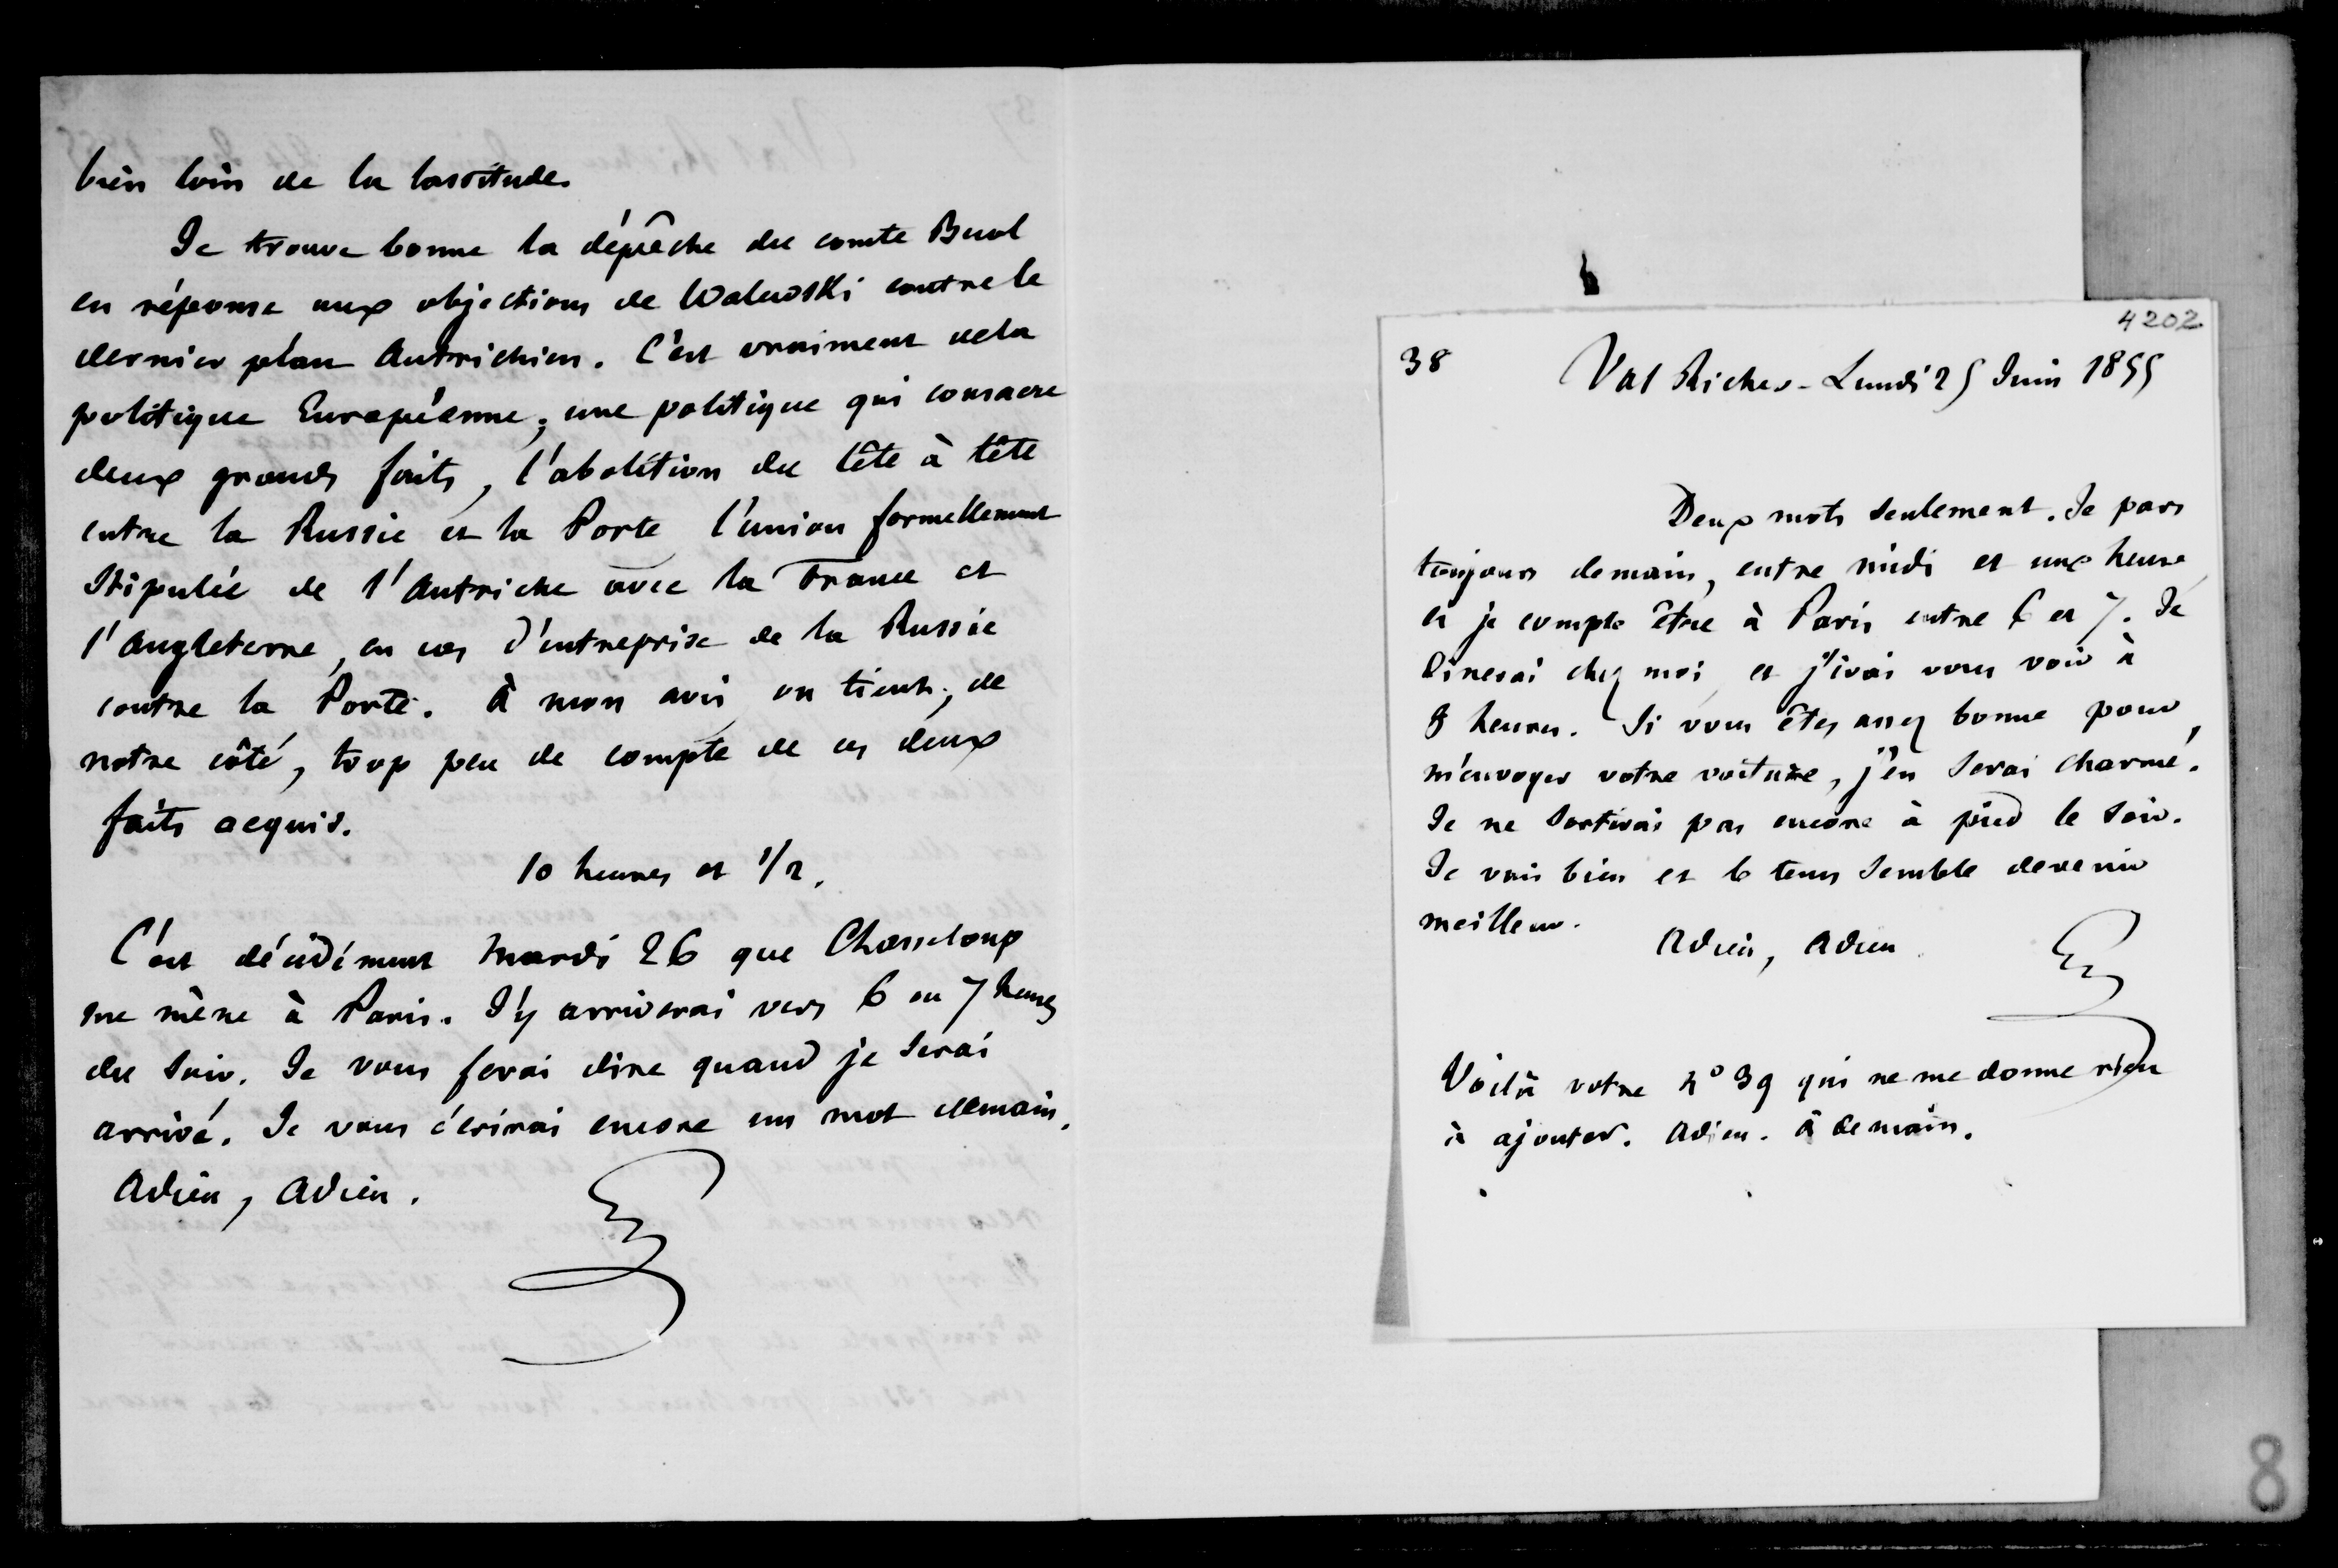 bien loin de la lassitude.
Je trouve bonne la dépêche du comte Buol
en réponse aux objections de Walewski contre le
dernier plan Autrichien. C'est vraiment de la
politique Européenne, une politique qui consacre
deux grands faits, l'abolition du tête à tête
entre la Russie et la Porte l'union formellement
stipulée de l'Autriche avec la France et
l'Angleterre, en cas d'entreprise de la Russie
contre la Porte. à mon avis on tient, de
notre côté, trop peu de compte de ces deux
faits acquis.
10 heures et 1/2.
C'est décidément mardi 26 que Chasseloup
me mène à Paris. J'y arriverai vers 6 ou 7 heures
du soir. Je vous ferai dire quand je serai
arrivé. Je vous écrirai encore un mot demain.
Adieu, Adieu.
4202
38
Val Richer - Lundi 25 Juin 1855
Deux mots seulement. Je pars
toujours demain, entre midi et une heure,
et je compte être à Paris entre 6 et 7. Je
dinerai chez moi et j'irai vous voir à
8 heures. Si vous êtes assez bonne pour
m'envoyer votre voiture, j'en serai charmé.
Je ne sortirai pas encore à pied le soir.
Je vais bien et le tems semble devenir
meilleur.
Adieu, Adieu
Voilà votre no 39 qui ne me donne rien
à ajouter. Adieu. à demain.
8